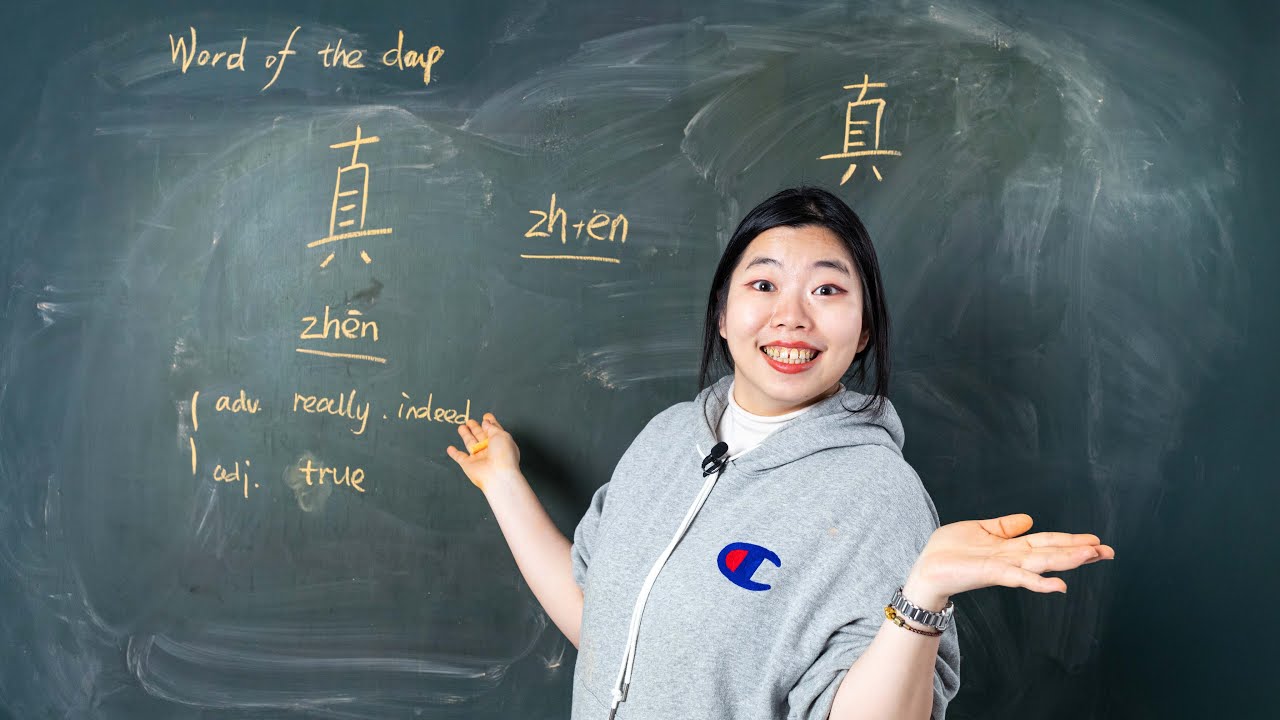 Word of the day
真
真
zh+en
zhēn
adv. really. indeed
adj. true